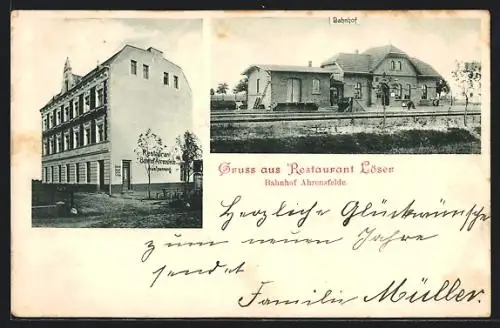 Bahnhof
Restaurant
Bahnhof Ahrensfelde
Ausspannung
Gruss aus Restaurant Löser
Bahnhof Ahrensfelde.
Herzliche Glückwünsche
zum neuen Jahre
sendet
Familie Müller.